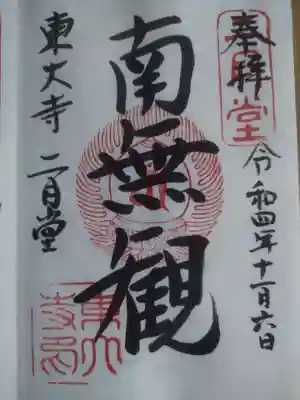 奉拝
令和四年十一月六日
南無観
東大寺 二月堂